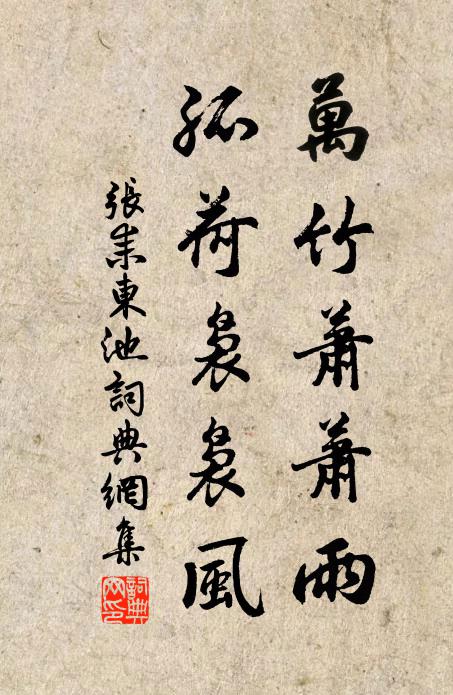 萬竹蕭蕭雨
孤荷裊裊風
張耒東池詞典網集
詞典網印